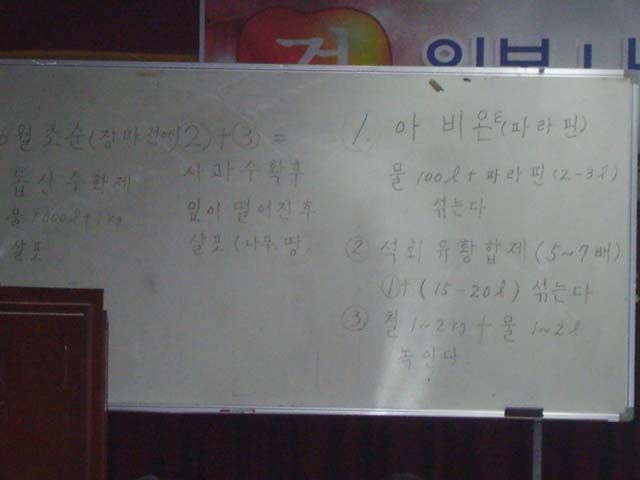 6월 초순(장마전에) ②+③ =
톱신수화제
살포
사과수확후
잎이 떨어진후
살포 (나무, 땅
1. 아비온E(파라핀)
물 100ℓ + 파라핀(2-3ℓ)
섞는다
② 석회유황합제 (5~7배)
①+(15-20ℓ) 섞는다
③ 철 1~2kg + 물 1~2ℓ
녹인다.